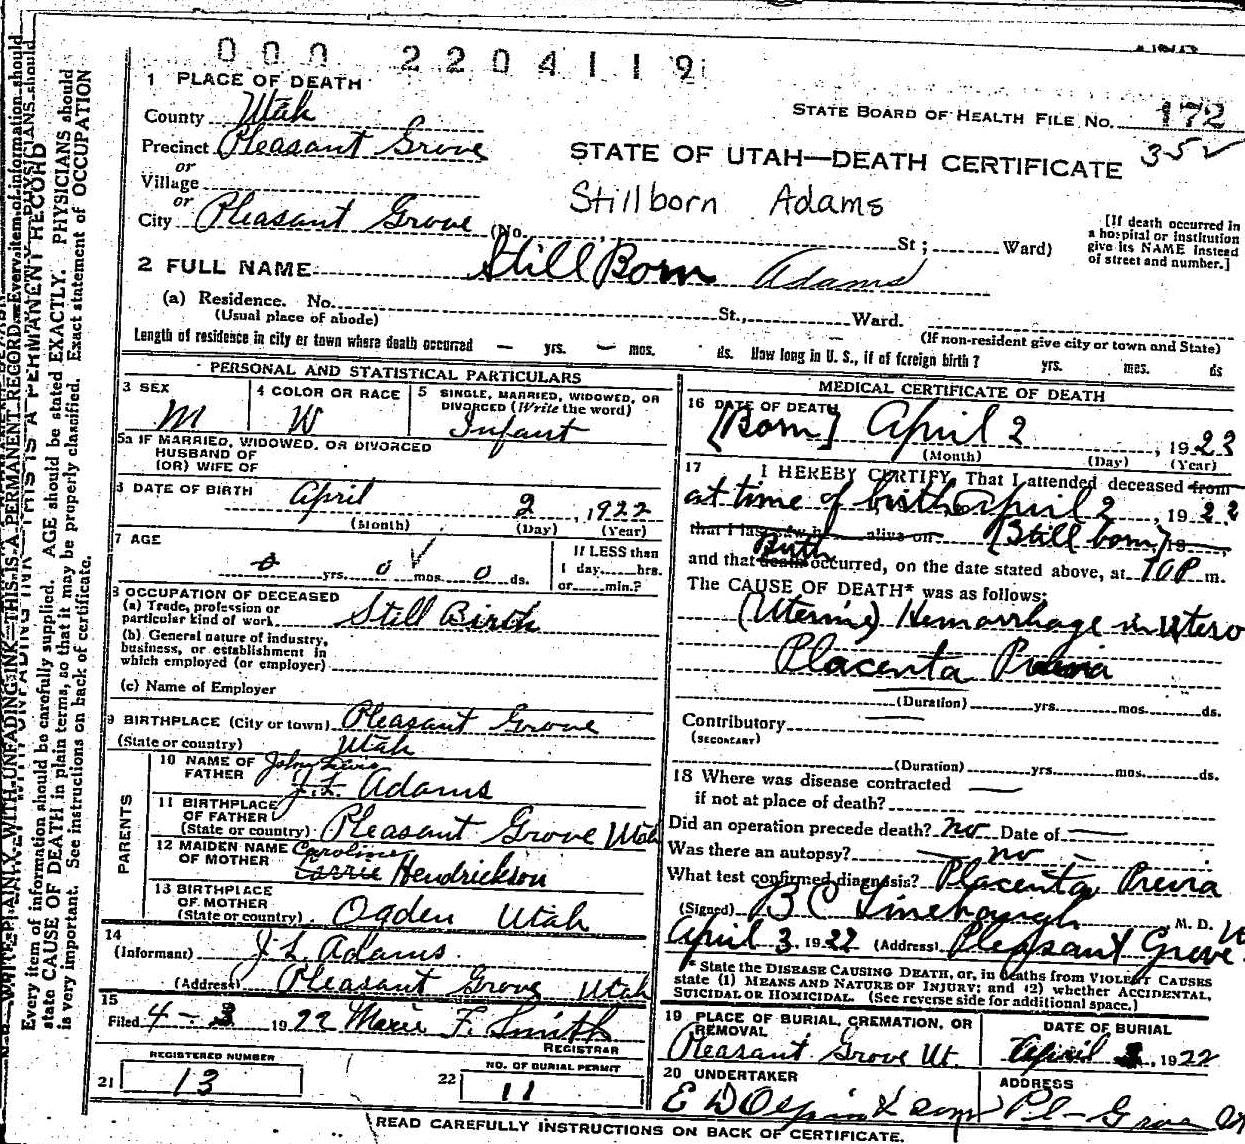 000 2204119
1 PLACE OF DEATH
County Utah
STATE BOARD OF HEALTH FILE No. 172
Precinct Pleasant Grove
352
STATE OF UTAH—DEATH CERTIFICATE
or
Village
Stillborn Adams
or
City Pleasant Grove (No. St; Ward)
[If death occurred in
a hospital or institution
give its NAME instead
of street and number.]
2 FULL NAME Still Born Adams
(a) Residence. No. St., Ward.
(Usual place of abode)
(If non-resident give city or town and State)
Length of residence in city or town where death occurred — yrs. — mos. ds. How long in U. S., if of foreign birth? yrs. mos. ds
PERSONAL AND STATISTICAL PARTICULARS
3 SEX
M
4 COLOR OR RACE
W
5 SINGLE, MARRIED, WIDOWED, OR
DIVORCED (Write the word)
Infant
5a IF MARRIED, WIDOWED, OR DIVORCED
HUSBAND OF
(OR) WIFE OF
6 DATE OF BIRTH April 2, 1922
(Month) (Day) (Year)
7 AGE
0 yrs. 0 mos. 0 ds.
If LESS than
1 day hrs.
or min.?
8 OCCUPATION OF DECEASED
(a) Trade, profession or
particular kind of work Still Birth
(b) General nature of industry,
business, or establishment in
which employed (or employer)
(c) Name of Employer
9 BIRTHPLACE (City or town) Pleasant Grove
(State or country) Utah
PARENTS
10 NAME OF FATHER John Lewis
J. L. Adams
11 BIRTHPLACE
OF FATHER
(State or country) Pleasant Grove Utah
12 MAIDEN NAME
OF MOTHER Caroline
Carrie Hendrickson
13 BIRTHPLACE
OF MOTHER
(State or country) Ogden Utah
14
(Informant) J L Adams
(Address) Pleasant Grove Utah
15
Filed 4-3 1922 Marie F. Smith
REGISTRAR
REGISTERED NUMBER
21 13
NO. OF BURIAL PERMIT
22 11
MEDICAL CERTIFICATE OF DEATH
16 DATE OF DEATH
[Born] April 2, 1923
(Month) (Day) (Year)
17 I HEREBY CERTIFY, That I attended deceased from
at time of birth April 2 1922
that I last saw h alive on (Still born) 19
Birth
and that death occurred, on the date stated above, at 10 P m.
The CAUSE OF DEATH* was as follows:
(Uterine) Hemorrhage in Utero
Placenta Previa
(Duration) yrs. mos. ds.
Contributory
(SECONDARY)
(Duration) yrs. mos. ds.
18 Where was disease contracted
if not at place of death?
Did an operation precede death? no Date of
Was there an autopsy? no
What test confirmed diagnosis? Placenta Previa
(Signed) B C Linebaugh M. D.
April 3 1922 (Address) Pleasant Grove
* State the DISEASE CAUSING DEATH, or, in deaths from VIOLENT CAUSES
state (1) MEANS AND NATURE OF INJURY; and (2) whether ACCIDENTAL,
SUICIDAL OR HOMICIDAL. (See reverse side for additional space.)
19 PLACE OF BURIAL, CREMATION, OR
REMOVAL
Pleasant Grove Ut.
DATE OF BURIAL
April 3, 1922
20 UNDERTAKER
E D Olpin & Sons
ADDRESS
Pl- Grove
READ CAREFULLY INSTRUCTIONS ON BACK OF CERTIFICATE.
WRITE PLAINLY, WITH UNFADING INK—THIS IS A PERMANENT RECORD
Every item of information should be carefully supplied. AGE should be stated EXACTLY. PHYSICIANS should
state CAUSE OF DEATH in plain terms, so that it may be properly classified. Exact statement of OCCUPATION
is very important. See instructions on back of certificate.